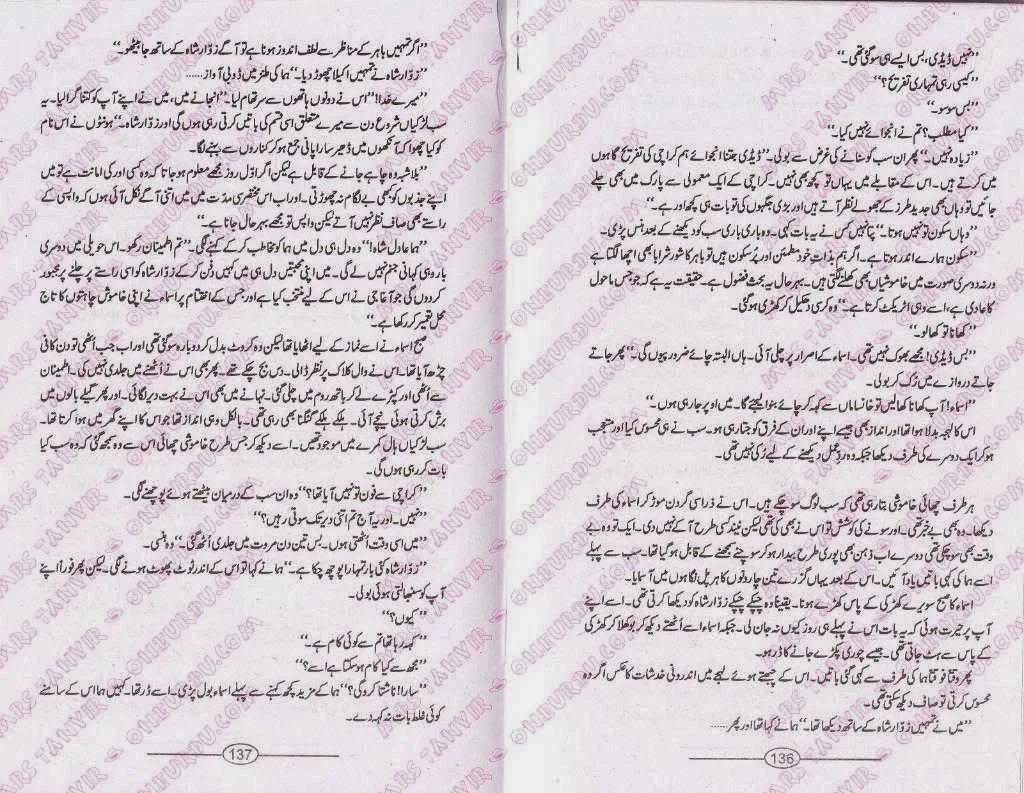 ”نہیں ڈیڈی، بس ایسے ہی سو گئی تھی۔“
”کیسی رہی تمہاری تفریح؟“
”بس سو سو۔“
”کیا مطلب؟ تم نے انجوائے نہیں کیا۔“
”زیادہ نہیں۔“ پھر ان سب کو سنانے کی غرض سے بولی۔ ”ڈیڈی جتنا انجوائے ہم کراچی کی تفریح گاہوں
میں کرتے ہیں۔ اس کے مقابلے میں یہاں تو کچھ بھی نہیں۔ کراچی کے ایک معمولی سے پارک میں بھی چلے
جائیں تو وہاں بھی جدید طرز کے جھولے نظر آتے ہیں اور بڑی جگہوں کی تو بات ہی کچھ اور ہے۔“
”وہاں سکون تو نہیں ہوتا۔“ پتا نہیں کس نے یہ بات کہی۔ وہ باری باری سب کو دیکھنے کے بعد ہنس پڑی۔
”سکون ہمارے اندر ہوتا ہے۔ اگر ہم بذاتِ خود مطمئن اور پُرسکون ہیں تو باہر کا شور شرابا بھی اچھا لگتا ہے
ورنہ دوسری صورت میں خاموشیاں بھی کھلنے لگتی ہیں۔ بہر حال یہ بحث فضول ہے۔ حقیقت یہ ہے کہ جو جس ماحول
کا عادی ہے، اسے وہی اٹریکٹ کرتا ہے۔“ وہ کرسی دھکیل کر کھڑی ہو گئی۔
”کھانا تو کھا لو۔“
”بس ڈیڈی! مجھے بھوک نہیں تھی۔ اسماء کے اصرار پر چلی آئی۔ ہاں البتہ چائے ضرور پیوں گی۔“ پھر جاتے
جاتے دروازے میں رُک کر بولی۔
”اسماء! آپ کھانا کھا لیں تو خانساماں سے کہہ کر چائے بنوا لیجئے گا۔ میں اوپر جا رہی ہوں۔“
اس کا لہجہ بدلا ہوا تھا اور انداز بھی جیسے اپنے اور ان کے فرق کو جتا رہی ہو۔ سب نے ہی محسوس کیا اور متعجب
ہو کر ایک دوسرے کی طرف دیکھا جبکہ وہ ردِ عمل دیکھنے کے لیے رُکی نہیں تھی۔
ہر طرف چھائی خاموشی بتا رہی تھی کہ سب لوگ سو چکے ہیں۔ اس نے ذرا سی گردن موڑ کر اسماء کی طرف
دیکھا۔ وہ بھی بے خبر تھی۔ اور سونے کی کوشش تو اس نے بھی کی تھی لیکن نیند کسی طرح آ کے نہیں دی۔ ایک تو وہ بے
وقت بھی سو چکی تھی دوسرے اب ذہن بھی پوری طرح بیدار ہو کر سوچنے سمجھنے کے قابل ہو گیا تھا۔ سب سے پہلے
اسے ہما کی کہی باتیں یاد آئیں۔ اس کے بعد یہاں گزرے تین چار دنوں کا ہر پل نگاہوں میں آ سمایا۔
اسماء کا صبح سویرے کھڑکی کے پاس کھڑے ہونا۔ یقیناً وہ چپکے چپکے زوّار شاہ کو دیکھا کرتی تھی۔ اسے اپنے
آپ پر حیرت ہوئی کہ یہ بات اس نے پہلے ہی روز کیوں نہ جان لی۔ جبکہ اسماء اسے اُٹھتے دیکھ کر بوکھلا کر کھڑکی
کے پاس سے ہٹ جاتی تھی۔ جیسے چوری پکڑے جانے کا ڈر ہو۔
پھر وقتاً فوقتاً ہما کی طرف سے کہی گئی باتیں۔ اس کے چبھتے ہوئے لہجے میں اندرونی خدشات کا عکس اگر وہ
محسوس کرتی تو صاف دیکھ سکتی تھی۔
”میں نے تمہیں زوّار شاہ کے ساتھ دیکھا تھا۔“ ہما نے کہا تھا اور پھر......
136
”اگر تمہیں باہر کے مناظر سے لطف اندوز ہونا ہے تو آگے زوّار شاہ کے ساتھ جا بیٹھو۔“
”زوّار شاہ نے تمہیں اکیلا چھوڑ دیا۔“ ہما کی طنز میں ڈوبی آواز......
”میرے خدا!“ اس نے دونوں ہاتھوں سے سر تھام لیا۔ ”انجانے میں، میں نے اپنے آپ کو کتنا گرا لیا۔ یہ
سب لڑکیاں شروع دن سے میرے متعلق اسی قسم کی باتیں کرتی رہی ہوں گی اور زوّار شاہ۔“ ہونٹوں نے اس نام
کو کیا چھوا کہ آنکھوں میں ڈھیر سارا پانی جمع ہو کر کناروں سے بہنے لگا۔
”بلاشبہ وہ چاہے جانے کے قابل ہے لیکن اگر اوّل روز مجھے معلوم ہو جاتا کہ وہ کسی اور کی امانت ہے تو میں
اپنے جذبوں کو کبھی بے لگام نہ چھوڑتی۔ اور اب اس مختصر سی مدت میں میں اتنی آگے نکل آئی ہوں کہ واپسی کے
راستے بھی صاف نظر نہیں آتے لیکن واپس تو مجھے بہر حال جانا ہے۔“
”ہما عادل شاہ!“ وہ دل ہی دل میں ہما کو مخاطب کر کے کہنے لگی۔ ”تم اطمینان رکھو۔ اس حویلی میں دوسری
بار وہی کہانی جنم نہیں لے گی۔ میں اپنی محبتیں دل ہی میں کہیں دفن کر کے زوّار شاہ کو اسی راستے پر چلنے پر مجبور
کر دوں گی جو آغا جی نے اس کے لیے منتخب کیا ہے اور جس کے اختتام پر اسماء نے اپنی خاموش چاہتوں کا تاج
محل تعمیر کر رکھا ہے۔“
صبح اسماء نے اسے نماز کے لیے اٹھایا تھا لیکن وہ کروٹ بدل کر دوبارہ سو گئی تھی اور اب جب اُٹھی تو دن کافی
چڑھ آیا تھا۔ اس نے وال کلاک پر نظر ڈالی۔ دس بج چکے تھے۔ پھر بھی اس نے اُٹھنے میں جلدی نہیں کی۔ اطمینان
سے اُٹھی اور کپڑے لے کر باتھ روم میں چلی گئی۔ نہانے میں بھی اس نے بہت دیر لگائی۔ اور پھر گیلے بالوں میں
برش کرتی ہوئی نیچے آئی۔ ہلکے ہلکے گنگنا بھی رہی تھی۔ بالکل وہی انداز تھا جو اس کا اپنے گھر میں ہوا کرتا تھا۔
سب لڑکیاں ہال کمرے میں موجود تھیں۔ اسے دیکھ کر جس طرح خاموشی چھائی اس سے وہ سمجھ گئی کہ وہ سب کیا
بات کر رہی ہوں گی۔
”کراچی سے فون تو نہیں آیا تھا؟“ وہ ان سب کے درمیان بیٹھتے ہوئے پوچھنے لگی۔
”نہیں۔ اور یہ آج تم اتنی دیر تک سوتی رہیں؟“
”میں اسی وقت اُٹھتی ہوں۔ بس تین دن مروت میں جلدی اُٹھ گئی۔“ وہ ہنسی۔
”زوّار شاہ کئی بار تمہارا پوچھ چکا ہے۔“ ہما نے کہا تو اس کے اندر ٹوٹ پھوٹ ہونے لگی۔ لیکن پھر فوراً اپنے
آپ کو سنبھالتی ہوئی بولی۔
”کیوں؟“
”کہہ رہا تھا تم سے کوئی کام ہے۔“
”مجھ سے کیا کام ہو سکتا ہے اسے؟“
”سارا! ناشتا کرو گی؟“ ہما کے مزید کچھ کہنے سے پہلے اسماء بول پڑی۔ اسے ڈر تھا کہیں ہما اس کے سامنے
کوئی غلط بات نہ کہہ دے۔
137